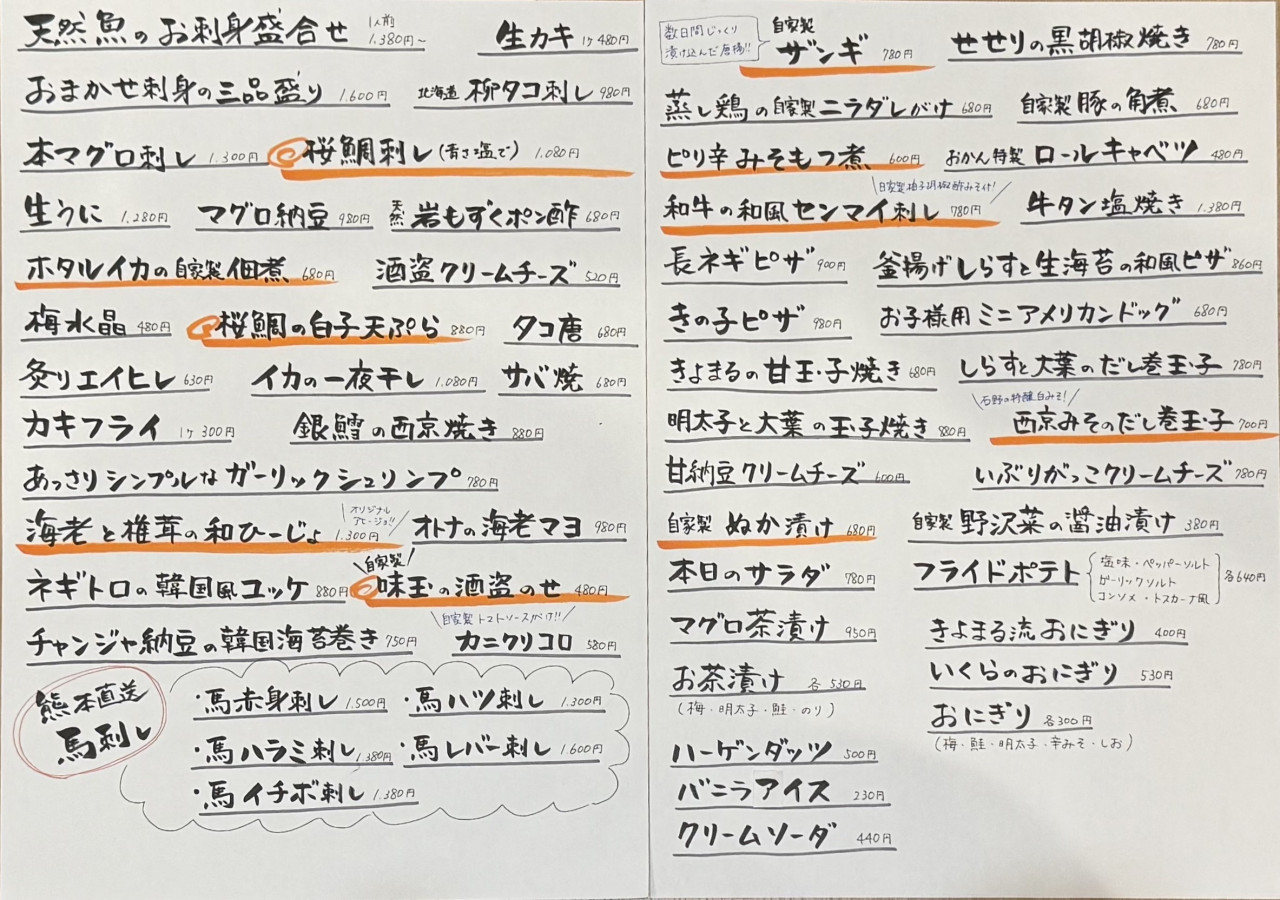 天然魚のお刺身盛合せ 1人前 1,380円～
生カキ 1ケ 480円
おまかせ刺身の三品盛り 1,600円
北海道 柳タコ刺し 980円
本マグロ刺し 1,300円
桜鯛刺し(青さ塩で) 1,080円
生うに 1,280円
マグロ納豆 980円
天然 岩もずくポン酢 680円
ホタルイカの自家製佃煮 680円
酒盗クリームチーズ 520円
梅水晶 480円
桜鯛の白子天ぷら 880円
タコ唐 680円
炙りエイヒレ 630円
イカの一夜干し 1,080円
サバ焼 680円
カキフライ 1ケ 300円
銀鱈の西京焼き 880円
あっさりシンプルなガーリックシュリンプ 780円
海老と椎茸の和ひーじょ 1,300円
オリジナル
アヒージョ!!
オトナの海老マヨ 980円
ネギトロの韓国風ユッケ 880円
自家製
味玉の酒盗のせ 480円
チャンジャ納豆の韓国海苔巻き 750円
自家製トマトソースがけ!!
カニクリコロ 580円
熊本直送
馬刺し
・馬赤身刺し 1,500円
・馬ハツ刺し 1,300円
・馬ハラミ刺し 1,380円
・馬レバー刺し 1,600円
・馬イチボ刺し 1,380円
数日間じっくり
漬け込んだ唐揚!!
自家製
ザンギ 780円
せせりの黒胡椒焼き 780円
蒸し鶏の自家製ニラダレがけ 680円
自家製豚の角煮 680円
ピリ辛みそもつ煮 600円
おかん特製 ロールキャベツ 480円
自家製柚子胡椒酢みそ付!
和牛の和風センマイ刺し 780円
牛タン塩焼き 1,380円
長ネギピザ 900円
釜揚げしらすと生海苔の和風ピザ 860円
きの子ピザ 980円
お子様用ミニアメリカンドッグ 680円
きよまるの甘玉子焼き 680円
しらすと大葉のだし巻玉子 780円
明太子と大葉の玉子焼き 880円
石野の特醸白みそ!
西京みそのだし巻玉子 700円
甘納豆クリームチーズ 600円
いぶりがっこクリームチーズ 780円
自家製 ぬか漬け 680円
自家製 野沢菜の醤油漬け 380円
本日のサラダ 780円
フライドポテト 塩味・ペッパーソルト
ガーリックソルト
コンソメ・トスカーナ風
各640円
マグロ茶漬け 950円
きよまる流おにぎり 400円
お茶漬け 各530円
(梅・明太子・鮭・のり)
いくらのおにぎり 530円
おにぎり 各300円
(梅・鮭・明太子・辛みそ・しお)
ハーゲンダッツ 500円
バニラアイス 230円
クリームソーダ 440円